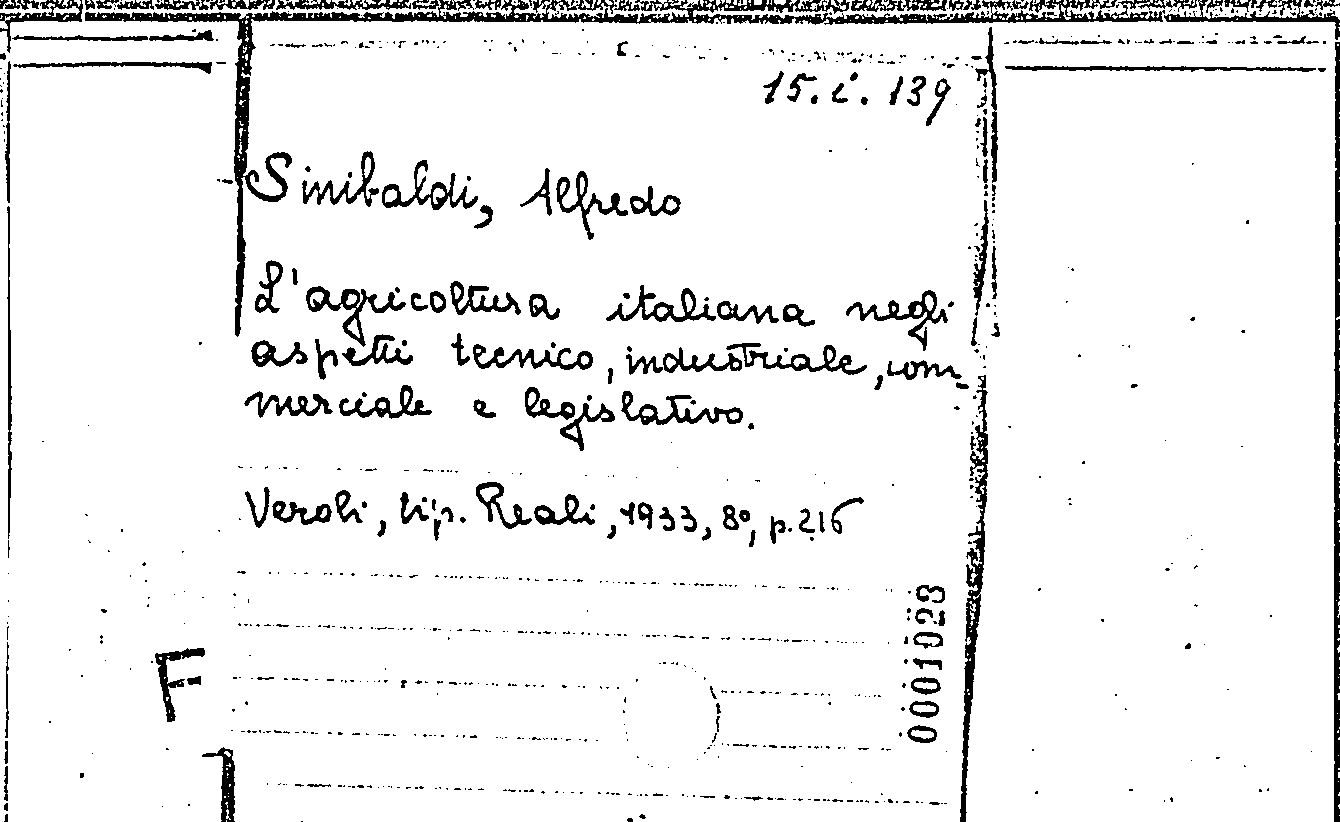 15.i.139
Sinibaldi, Alfredo
L'agricoltura italiana negli
aspetti tecnico, industriale, com-
merciale e legislativo.
Veroli, tip. Reali, 1933, 8º, p. 216
0001023
F